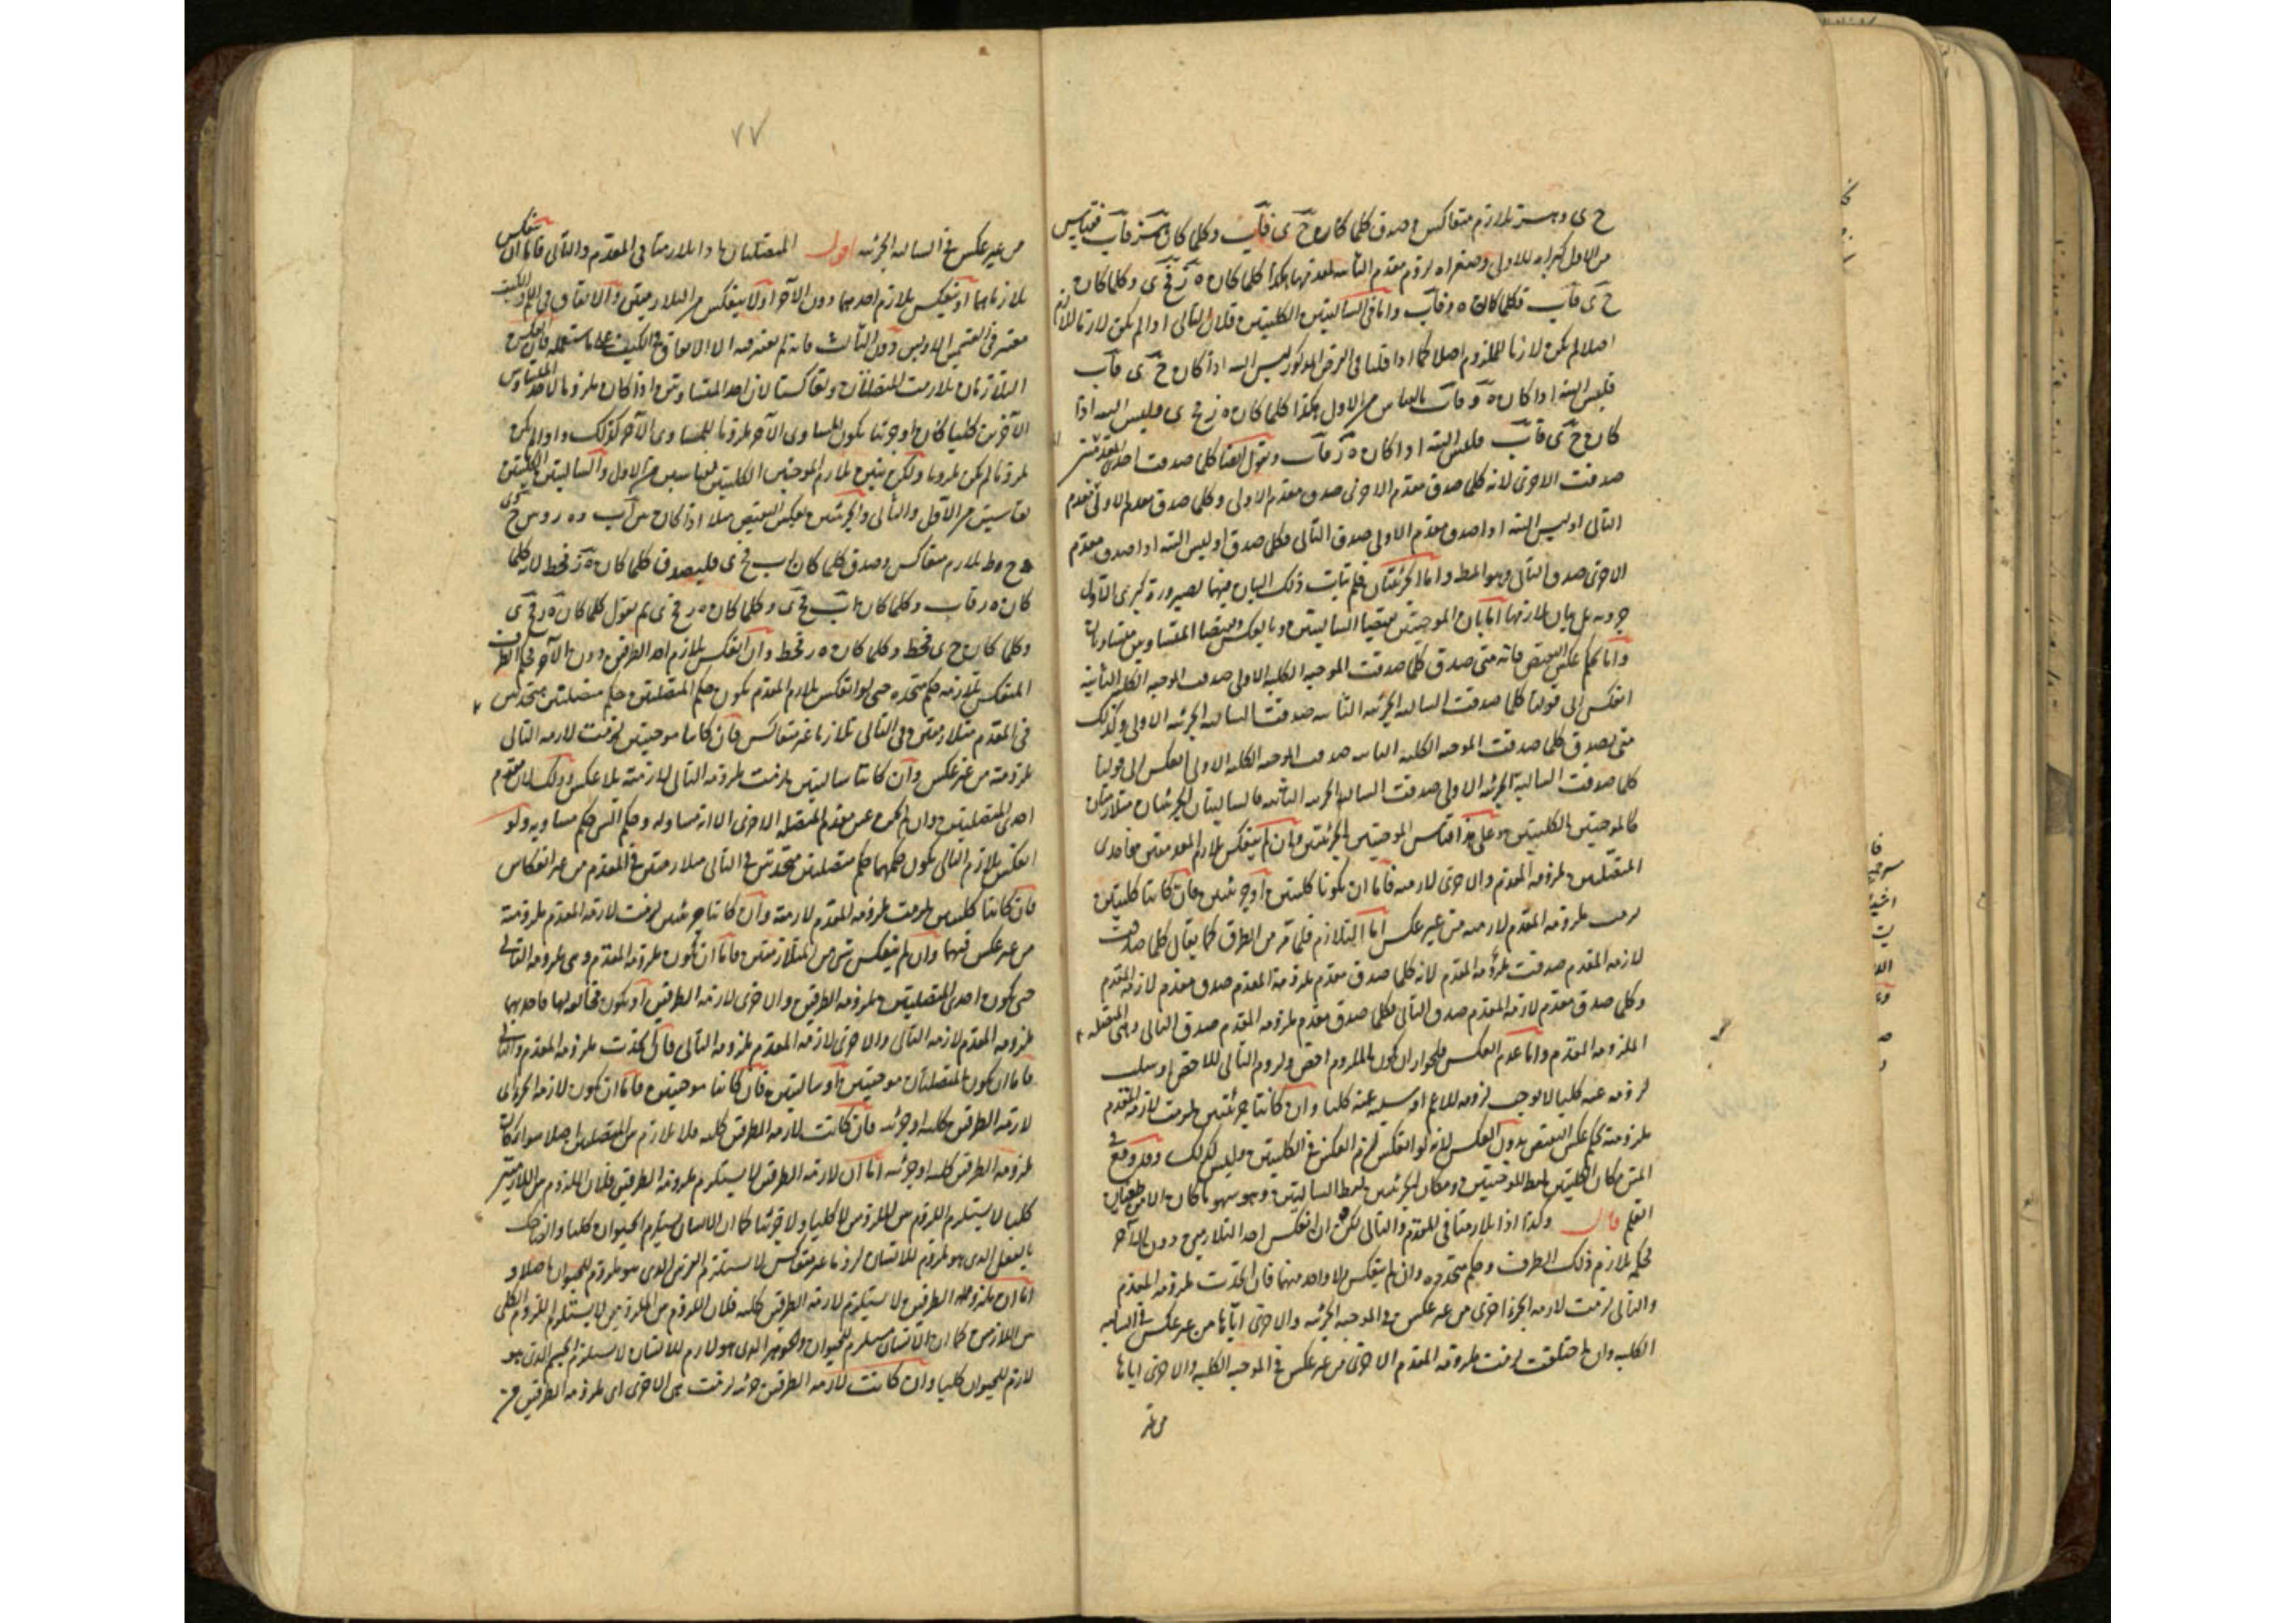 ح ى وہ ز تلازم متعاكس وصدق كلما كان ح ى فاب وكلما كان ه ز فاب فقياس
من الاول كبراه الاولى وصغراه لزوم مقدم الثانيه لمقدمها هكذا كلما كان ه ز فح ى وكلما كان
ح ى فاب فكلما كان ه ز فاب واما فى السالبتين الكليتين فلان التالى اذا لم يكن لازما للازم
اصلا لم يكن لازما للملزوم اصلا كما اذا قلنا فى الفرض المذكور ليس البته اذا كان ح ى فاب
فليس البته اذا كان ه ز فاب بالقياس من الاول هكذا كلما كان ه ز فح ى وليس البته اذا
كان ح ى فاب فليس البته اذا كان ه ز فاب ونقول ايضا كلما صدقت احدى
صدقت الاخرى لانه كلما صدق مقدم الاخرى صدق مقدم الاولى وكلما صدق مقدم الاولى
التالى او ليس البته اذا صدق مقدم الاولى صدق التالى فكلما صدق او ليس البته اذا صدق مقدم
الاخرى صدق التالى وهو المط واما الجزئيتان فلم يتأت ذلك البيان فيهما لصيرورة كبرى الاول
جزئيه بل بيان تلازمها اما بان الموجبتين نقيضا السالبتين وبالعكس ونقيضا المتساويين متساويان
واما بحكم عكس النقيض فانه متى صدق كلما صدقت الموجبه الكليه الاولى صدقت الموجبه الكليه الثانيه
انعكس الى قولنا كلما صدقت السالبه الجزئيه الثانيه صدقت السالبه الجزئيه الاولى وكذلك
متى يصدق كلما صدقت الموجبه الكليه الثانيه صدقت الموجبه الكليه الاولى انعكس الى قولنا
كلما صدقت السالبة الجزئيه الاولى صدقت السالبه الجزئيه الثانيه فالسالبتان الجزئيتان متلازمتان
كالموجبتين الكليتين وعلى هذا قياس الموجبتين الجزئيتين وان لم ينعكس تلازم المقدمتين فاحدى
المتصلتين ملزومه المقدم والاخرى لازمته فاما ان يكونا كليتين او جزئيتين فان كانتا كليتين
لزمت ملزومه المقدم لازمته من غير عكس اما التلازم فلما مر من الطرق كما يقال كلما صدقت
لازمه المقدم صدقت ملزومه المقدم لانه كلما صدق مقدم ملزومة المقدم صدق مقدم لازمه المقدم
وكلما صدق مقدم لازمه المقدم صدق التالى فكلما صدق مقدم ملزومه المقدم صدق التالى وهى المتصله
الملزومه المقدم واما عدم العكس فلجواز ان يكون الملزوم اخص ولزوم التالى للاخص او سلب
لزومه عنه كليا لا يوجب لزومه للاعم او سلبه عنه كليا وان كانتا جزئيتين لزمت لازمة المقدم
ملزومته بحكم عكس النقيض بدون العكس لانه لو انعكس لزم العكس فى الكليتين وليس كذلك وقد وقع فى
المتن مكان الكليتين لفظ الموجبتين ومكان الجزئيتين لفظ السالبتين وهو سهو ما كان الا من طغيان
القلم قال وكذا اذا تلازمتا فى المقدم والتالى لكن ان انعكس احد التلازمين دون الآخر
فحكم تلازم ذلك الطرف وحكم متحده وان لم ينعكس ولا واحد منهما فان اتحدت ملزومة المقدم
والتالى لزمت لازمه الجزء اخرى من غير عكس فى الموجبه الجزئيه والاخرى اياها من غير عكس فى السالبه
الكليه وان اختلفت لزمت ملزومه المقدم الاخرى من غير عكس فى الموجبه الكليه والاخرى اياها
من غير
٧٧
من غير عكس فى السالبه الجزئيه اقول المتصلتان اذا تلازمتا فى المقدم والتالى فاما ان ينعكس
تلازماهما او ينعكس تلازم احدهما دون الآخر او لا ينعكس من التلازمين والاتفاق فى الكم والكيف
معتبر فى القسمين الاولين دون الثالث فانه لم يعتبر فيه الا الاتفاق فى الكيف على ما ستعلمه فان انعكس
التلازمان تلازمت المتصلتان وتعاكستا لان احد المتساويين اذا كان ملزوما لاحد المتساويين
الآخرين كليا كان او جزئيا يكون المساوى الآخر ملزوما للمساوى الآخر كذلك واذا لم يكن
ملزوما لم يكن ملزوما ولكن يتبين تلازم الموجبتين الكليتين بقياسين من الاول والسالبتين الكليتين
بقياسين من الاول والثانى والجزئيتين بعكس النقيض مثلا اذا كان بين اب و ه ز وبين ح ى
و ح ط تلازم متعاكس وصدق كلما كان اب فح ى فليصدق كلما كان ه ز فحط لانه كلما
كان ه ز فاب وكلما كان اب فح ى وكلما كان ه ز فح ى ثم نقول كلما كان ه ز فح ى
وكلما كان ح ى فحط وكلما كان ه ز فحط وان انعكس تلازم احد الطرفين دون الآخر فحكم الطرف
المنعكس تلازمه حكم متحده حتى لو انعكس تلازم المقدم يكون حكم المتصلتين حكم متصلتين متحدتين
فى المقدم متلازمتين فى التالى تلازما غير متعاكس فان كانتا موجبتين لزمت لازمه التالى
ملزومته من غير عكس وان كانتا سالبتين لزمت ملزومه التالى لازمته بلا عكس وذلك لان مقدم
احدى المتصلتين وان لم يكن عين مقدم المتصله الاخرى الا انه مساو له وحكم الشى حكم مساويه ولو
انعكس تلازم التالى يكون حكمهما حكم متصلتين متحدتين فى التالى متلازمتين فى المقدم من غير انعكاس
فان كانتا كليتين لزمت ملزومه المقدم لازمته وان كانتا جزئيتين لزمت لازمه المقدم ملزومته
من غير عكس فيهما وان لم ينعكس شى من المتلازمتين فاما ان تكون ملزومه المقدم هى ملزومه التالى
حتى تكون احدى المتصلتين ملزومه الطرفين والاخرى لازمه الطرفين او يكون مخالفه لها فاحديهما
ملزومه المقدم لازمه التالى والاخرى لازمه المقدم ملزومه التالى فان اتحدت ملزومه المقدم والتالى
فاما ان يكون المتصلتان موجبتين او سالبتين فان كانتا موجبتين فاما ان تكون لازمه الجزءين اى
لازمه الطرفين كليه او جزئيه فان كانت لازمه الطرفين كليه فلا تلازم بين المتصلتين اصلا سوا كانت
ملزومه الطرفين كليه او جزئيه اما ان لازمه الطرفين لا يستلزم ملزومه الطرفين فلان اللزوم بين اللازمين
كليا لا يستلزم اللزوم بين الملزومين لا كليا ولا جزئيا كما ان الانسان يستلزم الحيوان كليا والضاحك
بالفعل الذى هو ملزوم للانسان لزوما غير متعاكس لا يستلزم الفرس الذى هو ملزوم للحيوان اصلا و
اما ان ملزومه الطرفين لا يستلزم لازمه الطرفين كليه فلان اللزوم بين الملزومين لا يستلزم اللزوم الكلى
بين اللازمين كما ان الانسان يستلزم الحيوان والجوهر الذى هو لازم للانسان لا يستلزم الجسم الذى هو
لازم للحيوان كليا وان كانت لازمه الطرفين جزئيه لزمت هى الاخرى اى ملزومه الطرفين من